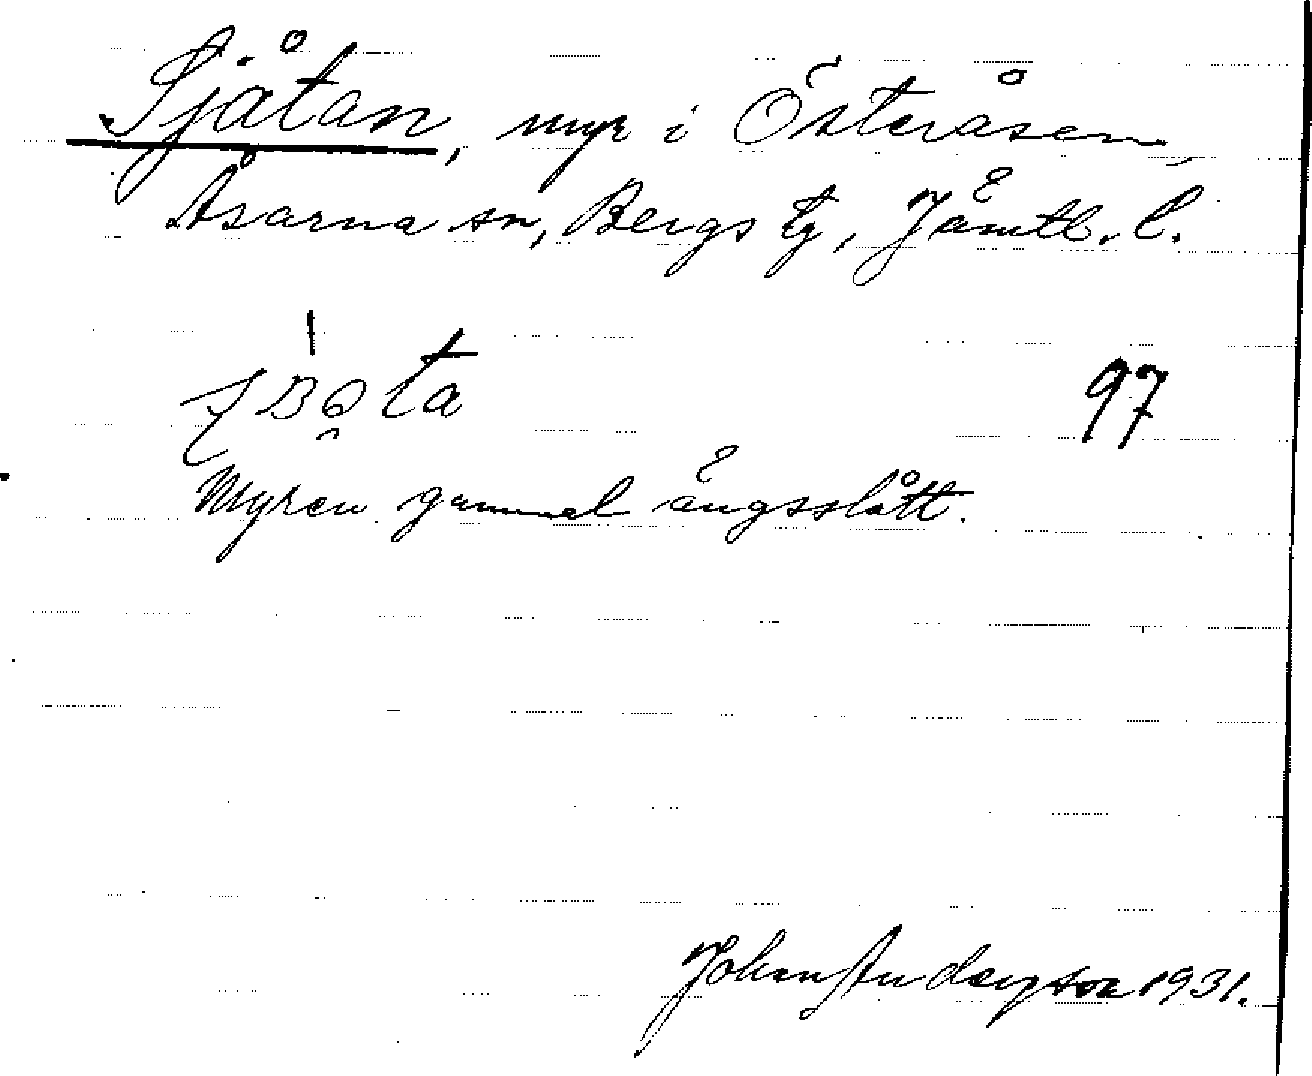 Sjåtan, myr i Österåsen,
Åsarna sn, Bergs tg, Jämtl. l.
97
Myren gammel ängsslått.
Johan Andersson 1931.